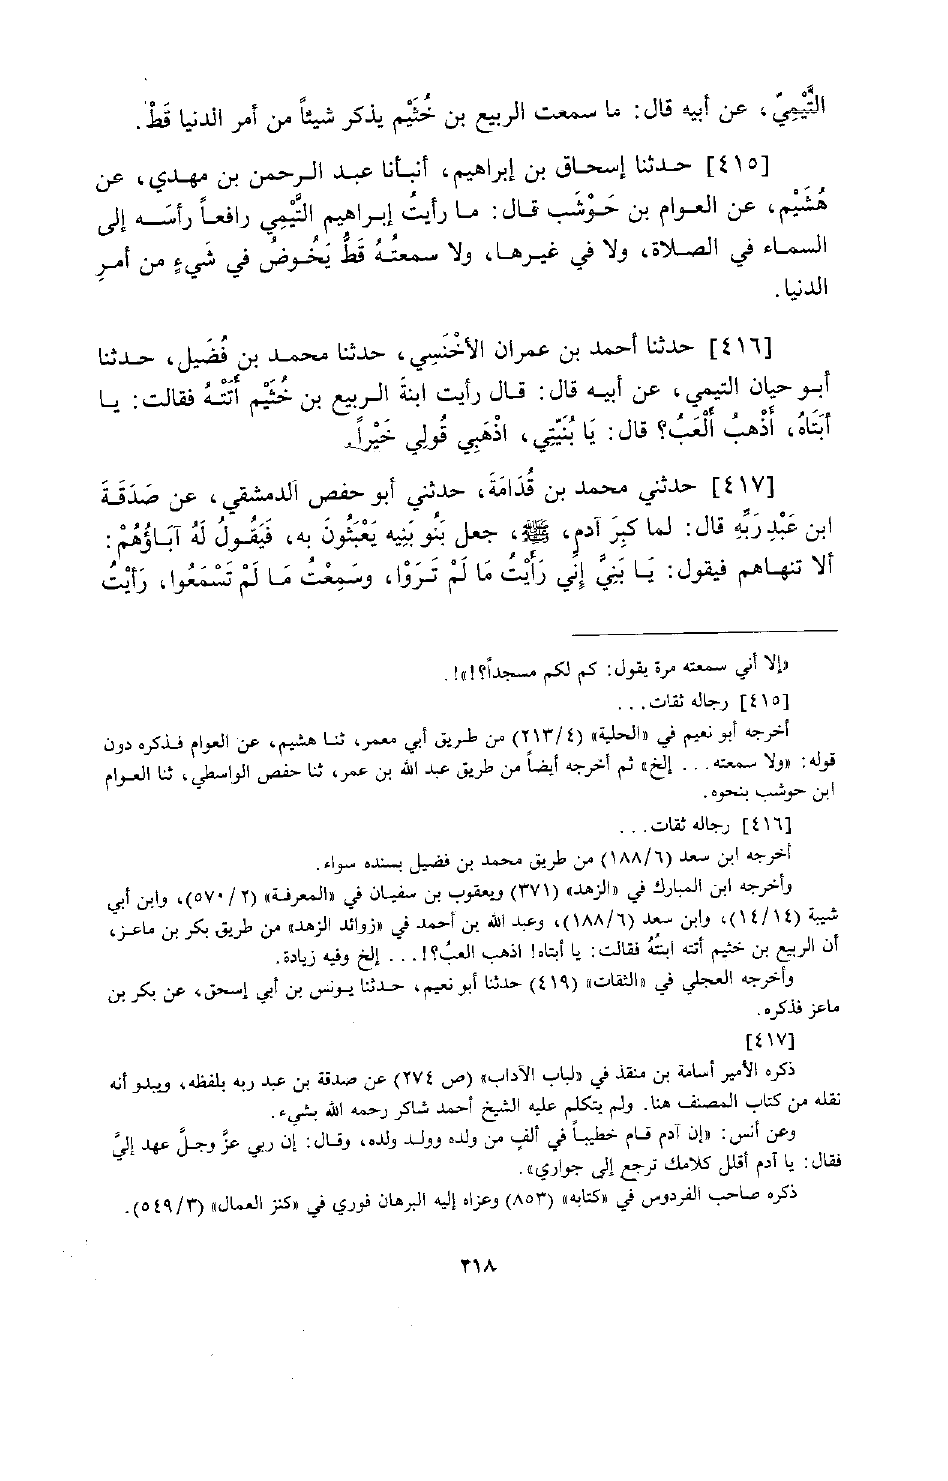 التَّيْمِيّ، عن أبيه قال: ما سمعت الربيع بن خُثَيْم يذكر شيئاً من أمر الدنيا قَطْ.
[٤١٥] حدثنا إسحاق بن إبراهيم، أنبأنا عبد الرحمن بن مهدي، عن
هُشَيْم، عن العوام بن حَوْشَب قال: ما رأيتُ إبراهيم التَّيْمي رافعاً رأسَه إلى
السماء في الصلاة، ولا في غيرها، ولا سمعتُهُ قَطُّ يَخُوضُ في شَيءٍ من أمرِ
الدنيا.
[٤١٦] حدثنا أحمد بن عمران الأخْنَسِي، حدثنا محمد بن فُضَيل، حدثنا
أبو حيان التيمي، عن أبيه قال: قال رأيت ابنةَ الربيع بن خُثَيْم أَتَتْهُ فقالت: يا
أبَتَاهُ، أَذْهبُ أَلْعَبُ؟ قال: يَا بُنَيَّتِي، اذْهَبِي قُولِي خَيْراً.
[٤١٧] حدثني محمد بن قُدَامَةَ، حدثني أبو حفص الدمشقي، عن صَدَقَةَ
ابن عَبْدِ رَبِّه قال: لما كَبِرَ آدم، ﷺ، جعل بَنُو بَنِيه يَعْبَثُونَ به، فَيَقُولُ لَهُ آبَاؤُهُمْ:
ألا تنهاهم فيقول: يَا بَنِيَّ إنِّي رَأَيْتُ مَا لَمْ تَرَوْا، وسَمِعْتُ مَا لَمْ تَسْمَعُوا، رَأَيْتُ
«إلا أني سمعته مرة يقول: كم لكم مسجداً؟!»!.
[٤١٥] رجاله ثقات...
أخرجه أبو نعيم في «الحلية» (٢١٣/٤) من طريق أبي معمر، ثنا هشيم، عن العوام فذكره دون
قوله: «ولا سمعته... إلخ» ثم أخرجه أيضاً من طريق عبد الله بن عمر، ثنا حفص الواسطي، ثنا العوام
ابن حوشب بنحوه.
[٤١٦] رجاله ثقات...
أخرجه ابن سعد (١٨٨/٦) من طريق محمد بن فضيل بسنده سواء.
وأخرجه ابن المبارك في «الزهد» (٣٧١) ويعقوب بن سفيان في «المعرفة» (٥٧٠/٢)، وابن أبي
شيبة (١٤/١٤)، وابن سعد (١٨٨/٦)، وعبد الله بن أحمد في «زوائد الزهد» من طريق بكر بن ماعز،
أن الربيع بن خثيم أتته ابنتُهُ فقالت: يا أبتاه! اذهب العبُ؟!... إلخ وفيه زيادة.
وأخرجه العجلي في «الثقات» (٤١٩) حدثنا أبو نعيم، حدثنا يونس بن أبي إسحق، عن بكر بن
ماعز فذكره.
[٤١٧]
ذكره الأمير أسامة بن منقذ في «لباب الآداب» (ص ٢٧٤) عن صدقة بن عبد ربه بلفظه، ويبدو أنه
نقله من كتاب المصنف هنا. ولم يتكلم عليه الشيخ أحمد شاكر رحمه الله بشيء.
وعن أنس: «إن آدم قام خطيباً في ألفٍ من ولده وولد ولده، وقال: إن ربي عزَّ وجلَّ عهد إليَّ
فقال: يا آدم أقلل كلامك ترجع إلى جواري».
ذكره صاحب الفردوس في «كتابه» (٨٥٣) وعزاه إليه البرهان فوري في «كنز العمال» (٥٤٩/٣).
٢١٨